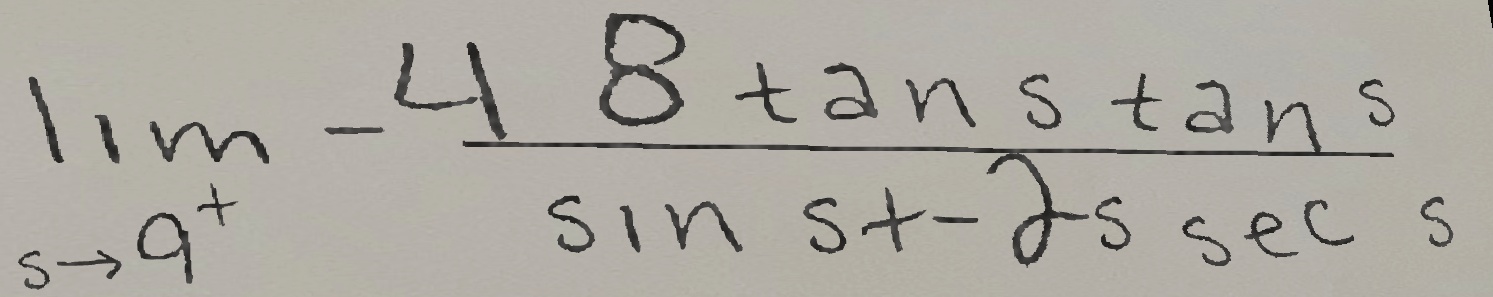 lim s→9⁺ -48 tan s tan s / sin s+-2s sec s